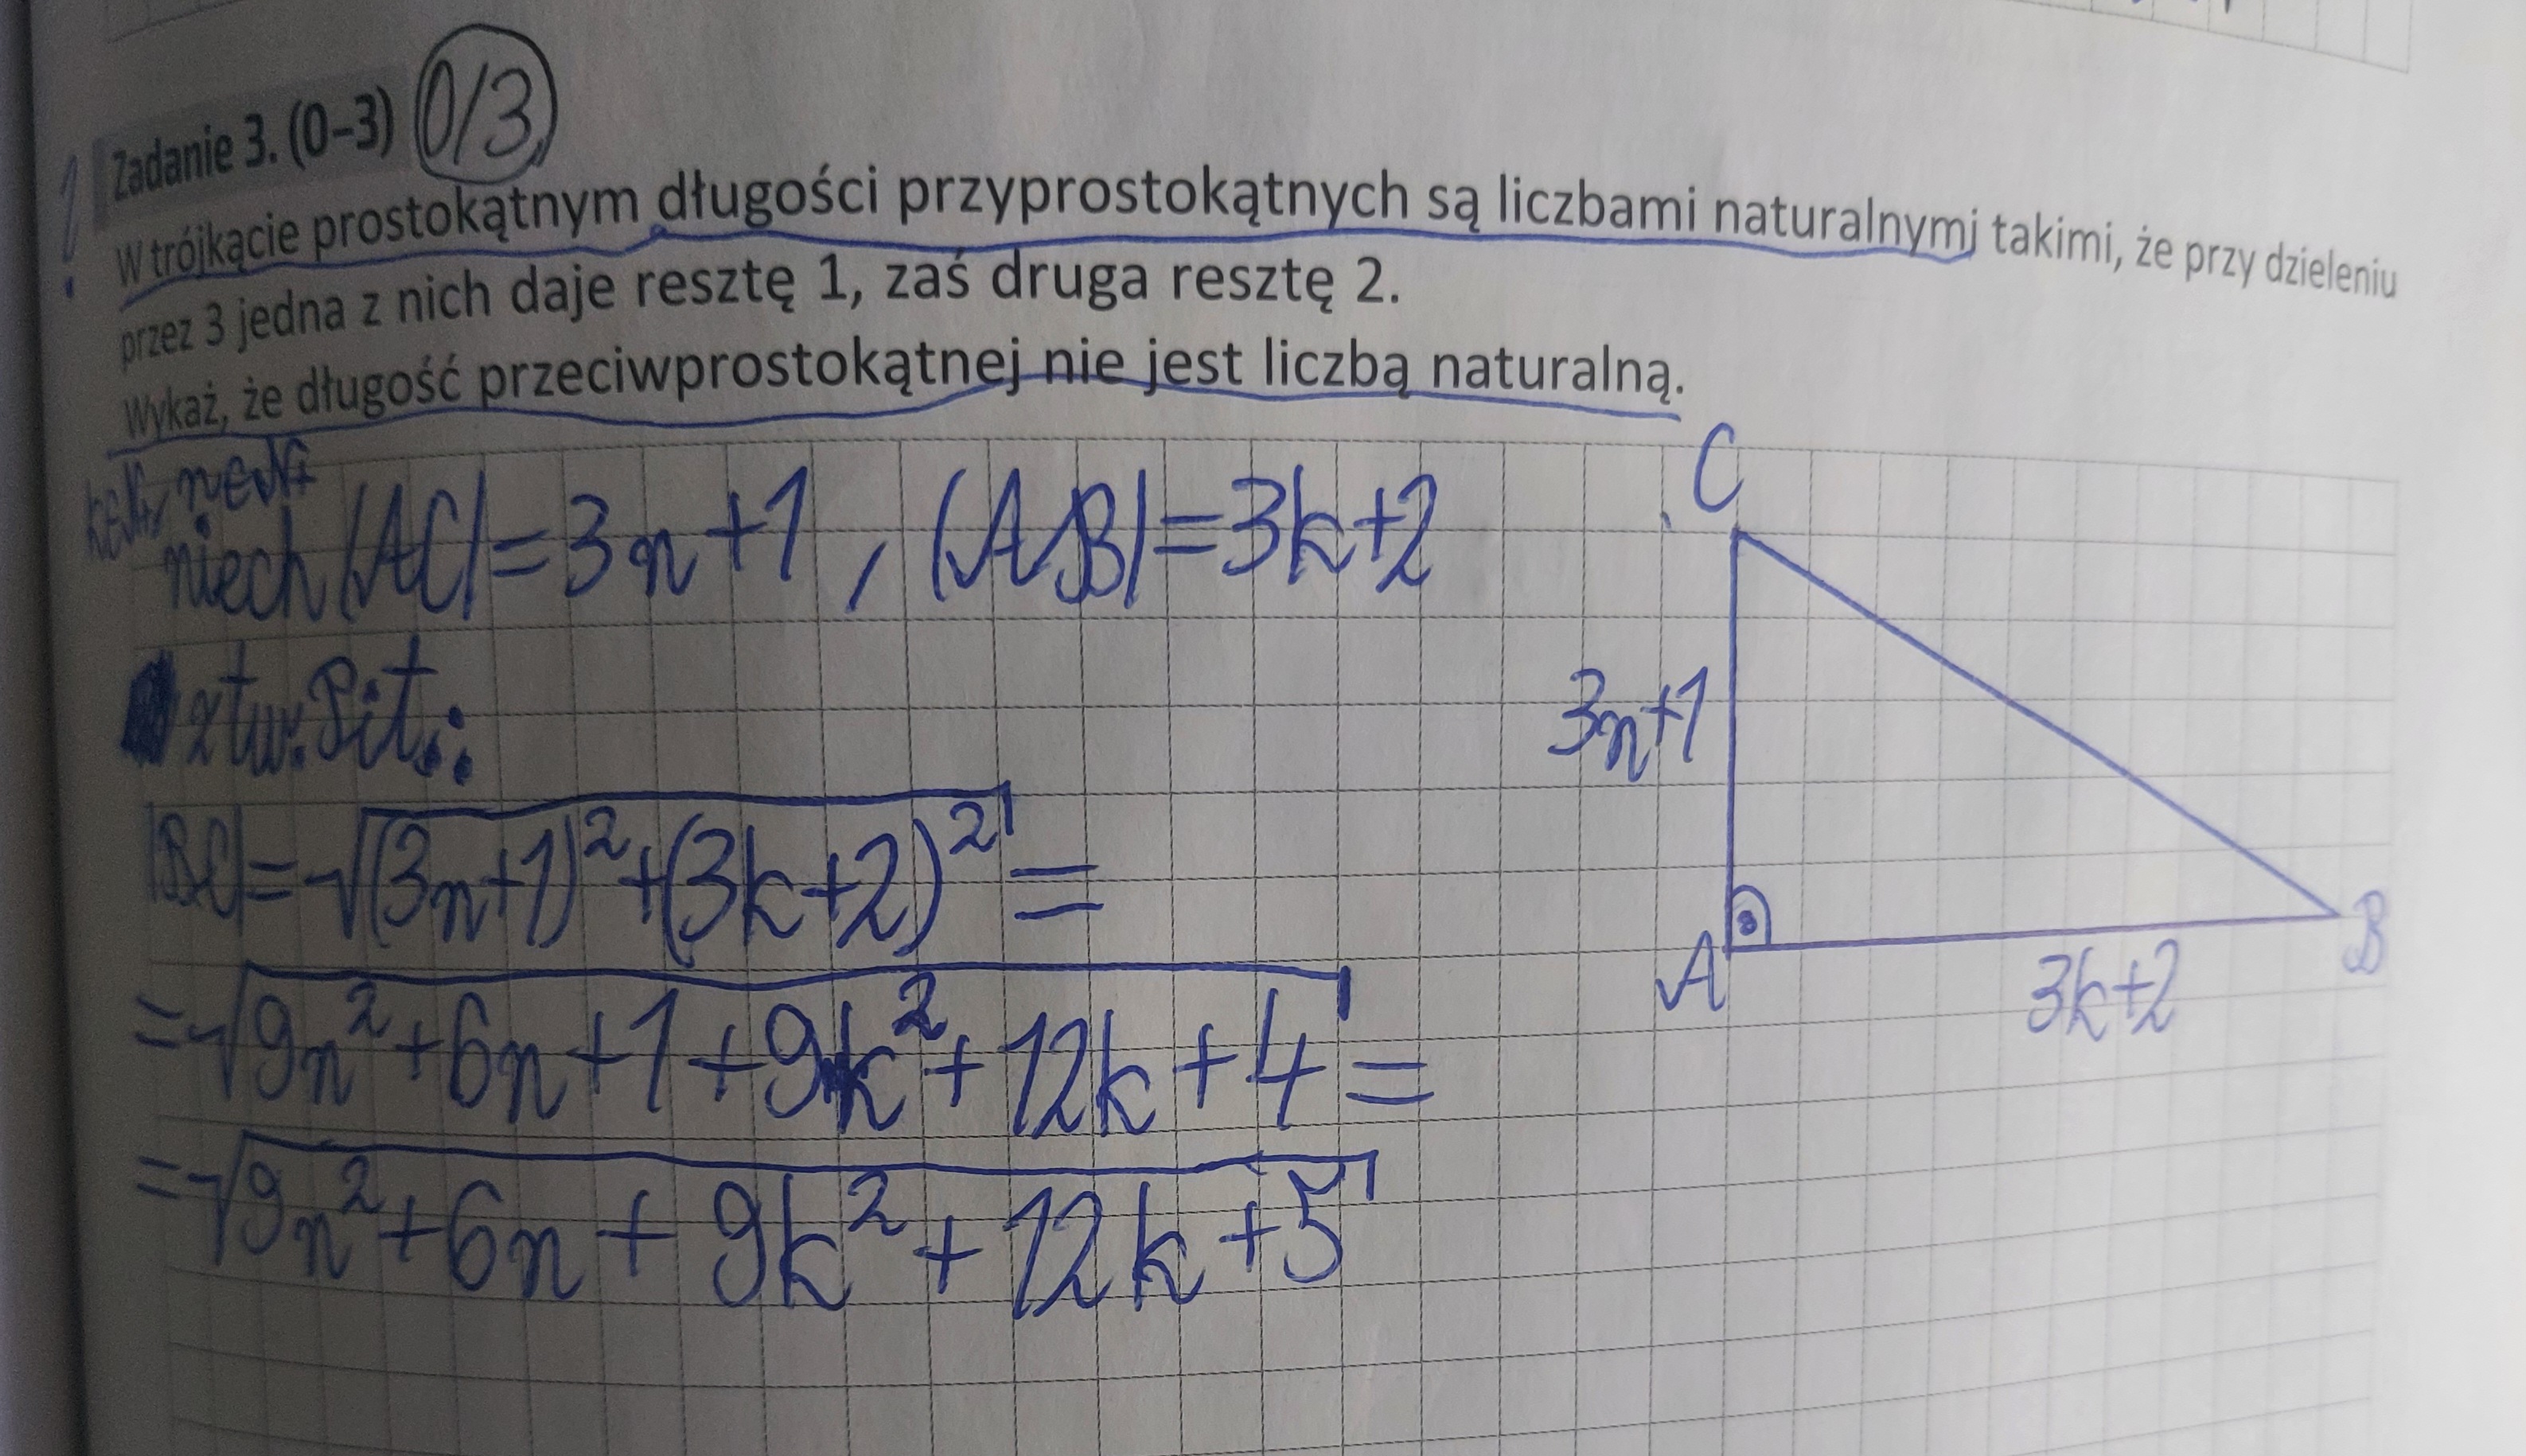 Zadanie 3. (0–3) 0/3
W trójkącie prostokątnym długości przyprostokątnych są liczbami naturalnymi takimi, że przy dzieleniu
przez 3 jedna z nich daje resztę 1, zaś druga resztę 2.
Wykaż, że długość przeciwprostokątnej nie jest liczbą naturalną.
niech |AC|=3n+1, |AB|=3k+2
z tw. Pit.:
|BC|=√(3n+1)²+(3k+2)² =
=√9n²+6n+1+9k²+12k+4 =
=√9n²+6n+9k²+12k+5
C
3n+1
A
B
3k+2